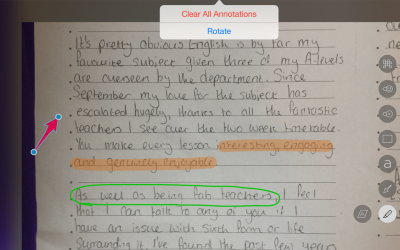 Clear All Annotations
Rotate
It's pretty obvious English is by far my
favourite subject given three of my A-levels
are overseen by the department. Since
September my love for the subject has
escalated hugely, thanks to all the fantastic
teachers I see over the two week timetable.
You make every lesson interesting, engaging
and genuinely enjoyable.
As well as being fab teachers, I feel
that I can talk to any of you if I
have an issue with sixth form or life
surrounding it. I've found the past few years
a